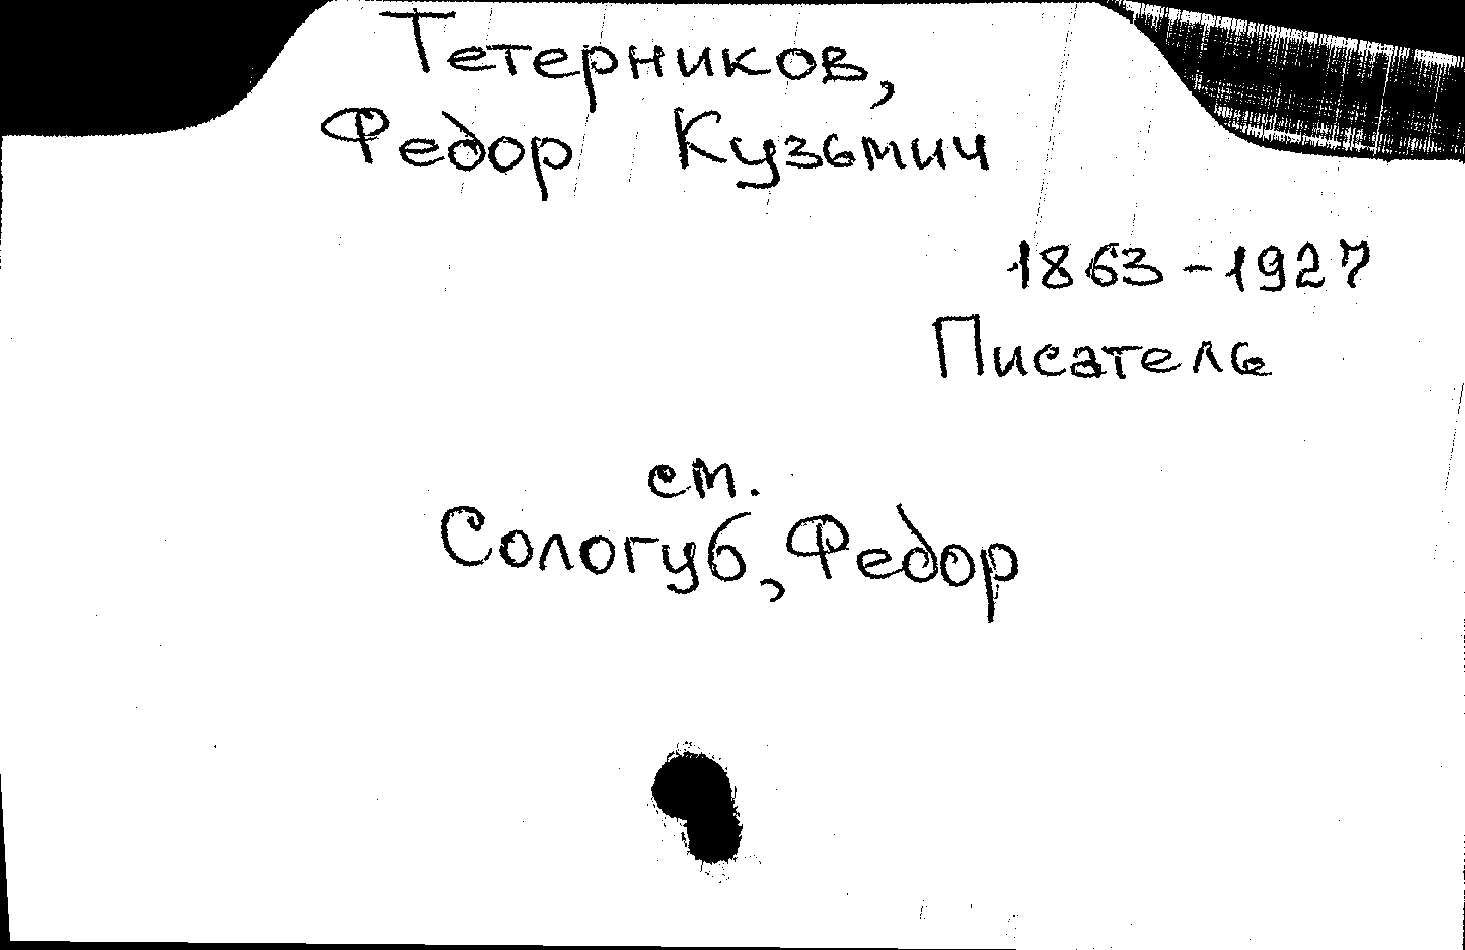 Тетерников,
Федор Кузьмич
1863-1927
Писатель
см.
Сологуб, Федор